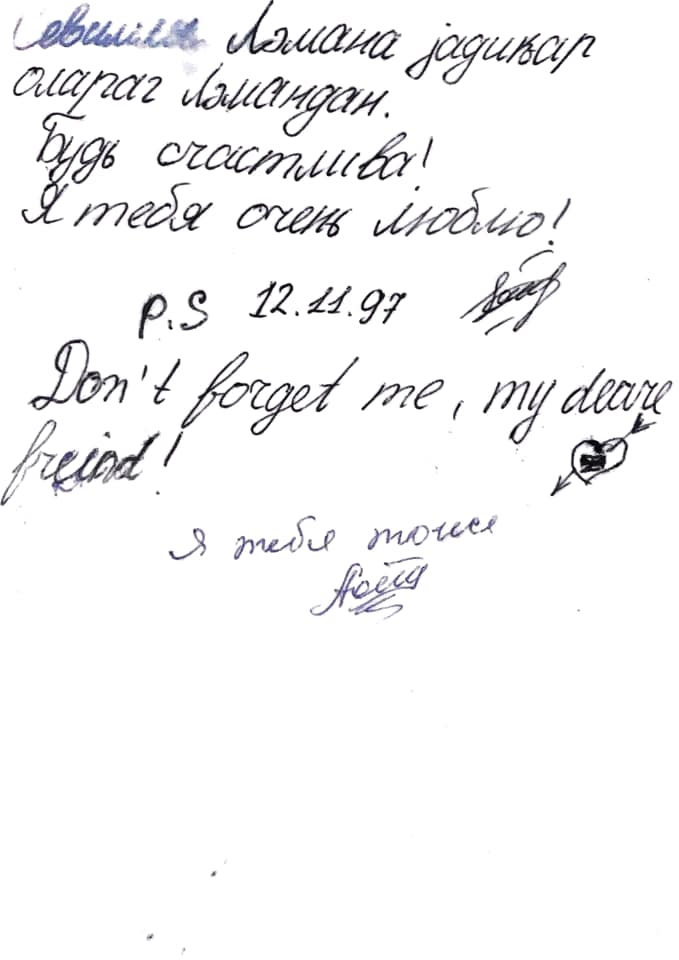 Ләмана јадикар
олараг Ләмандан.
Будь счастлива!
Я тебя очень люблю!
P.S 12.11.97
Don't forget me, my deare
freind!
Я тебя тоже